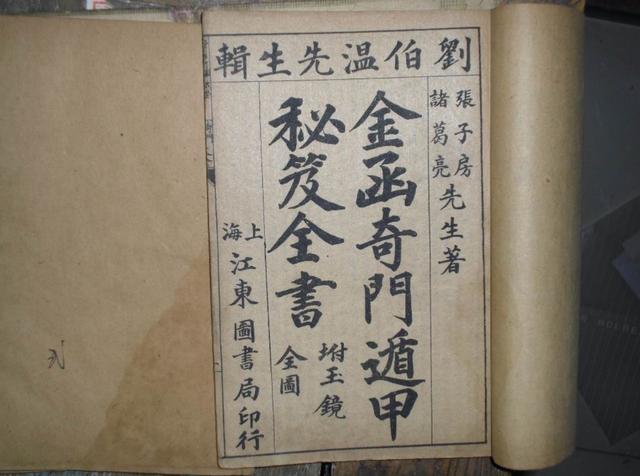 劉伯温先生輯
張子房
諸葛亮
先生著
金函奇門遁甲
秘笈全書
坿玉鏡
全圖
上海
江東圖書局印行